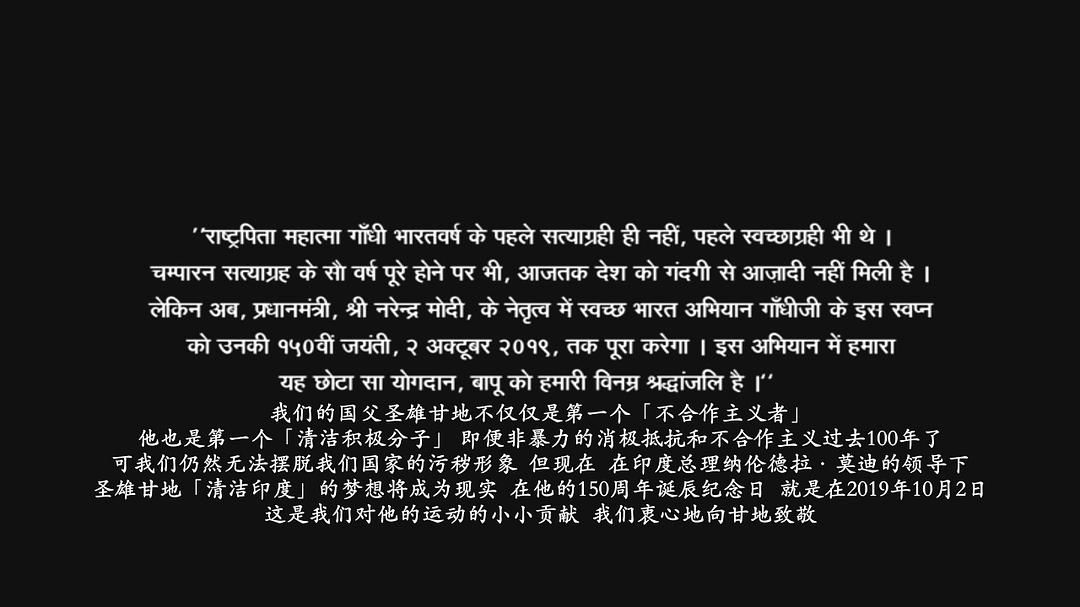 ’’राष्ट्रपिता महात्मा गाँधी भारतवर्ष के पहले सत्याग्रही ही नहीं, पहले स्वच्छाग्रही भी थे ।
चम्पारन सत्याग्रह के सौ वर्ष पूरे होने पर भी, आजतक देश को गंदगी से आज़ादी नहीं मिली है ।
लेकिन अब, प्रधानमंत्री, श्री नरेन्द्र मोदी, के नेतृत्व में स्वच्छ भारत अभियान गाँधीजी के इस स्वप्न
को उनकी १५०वीं जयंती, २ अक्टूबर २०१९, तक पूरा करेगा । इस अभियान में हमारा
यह छोटा सा योगदान, बापू को हमारी विनम्र श्रद्धांजलि है ।‘‘
我们的国父圣雄甘地不仅仅是第一个「不合作主义者」
他也是第一个「清洁积极分子」 即便非暴力的消极抵抗和不合作主义过去100年了
可我们仍然无法摆脱我们国家的污秽形象 但现在 在印度总理纳伦德拉·莫迪的领导下
圣雄甘地「清洁印度」的梦想将成为现实 在他的150周年诞辰纪念日 就是在2019年10月2日
这是我们对他的运动的小小贡献 我们衷心地向甘地致敬